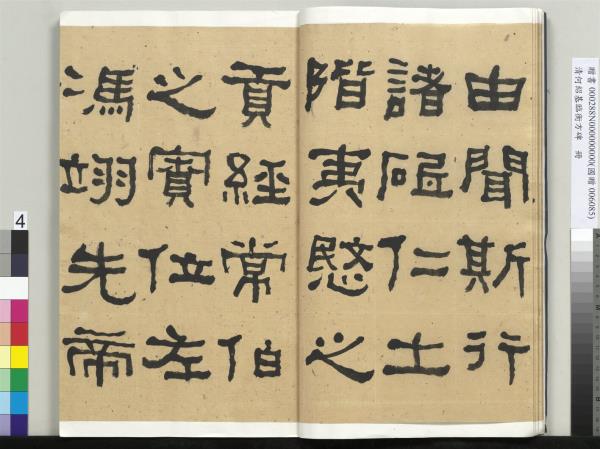 由聞斯行
諸砥仁土
階夷愍之
貢經常伯
之寮位左
馮翊先帝
贈書 000288N000000000(國贈 006085)
清何紹基臨衡方碑 冊
4